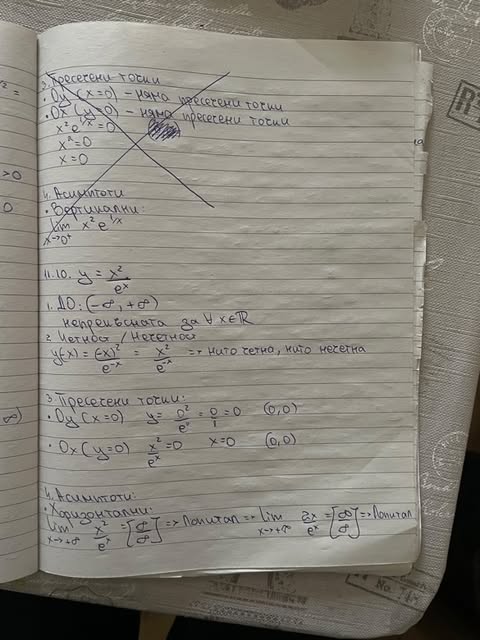 3. Пресечени точки
• Oy (x=0) - няма пресечени точки
• Ox (y=0) - няма пресечени точки
x² e^1/x = 0
x² = 0
x = 0
4. Асимптоти
• Вертикални:
lim x→0⁺ x² e^1/x
11.10. y = x²/e^x
1. ДО: (-∞, +∞)
непрекъсната за ∀ x∈ℝ
2. Четност / Нечетност
y(-x) = (-x)²/e^-x = x²/e^-x => нито четна, нито нечетна
3. Пресечени точки:
• Oy (x=0) y = 0²/e⁰ = 0/1 = 0 (0,0)
• Ox (y=0) x²/e^x = 0 x=0 (0,0)
4. Асимптоти:
• Хоризонтални:
lim x→+∞ x²/e^x = [∞/∞] => Лопитал => lim x→+∞ 2x/e^x = [∞/∞] => Лопитал